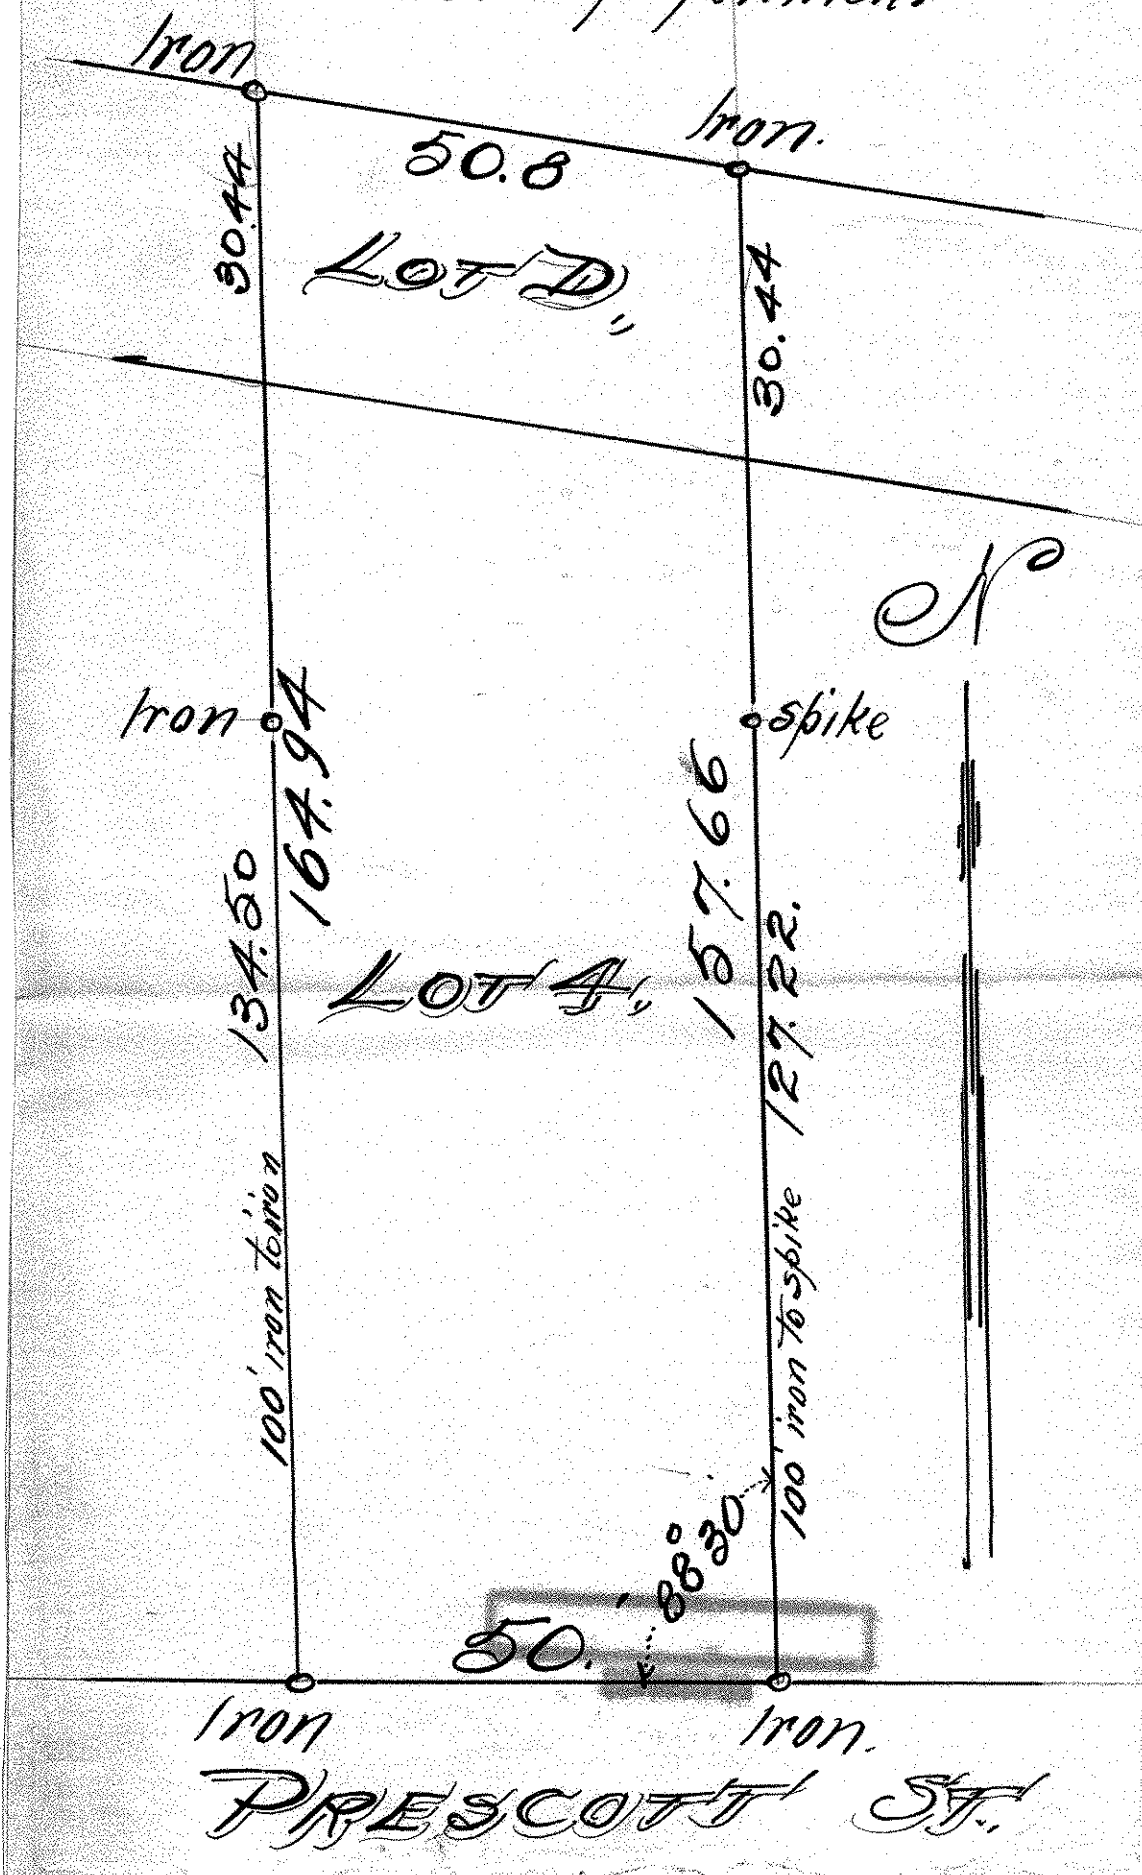 Iron
Iron.
50.8
30.44
LOT D,,
30.44
N
Iron
spike
164.94
157.66
134.50
127.22.
LOT 4,,
100' iron to iron
100' iron to spike
88° 30'
50.'
Iron
Iron.
PRESCOTT ST.